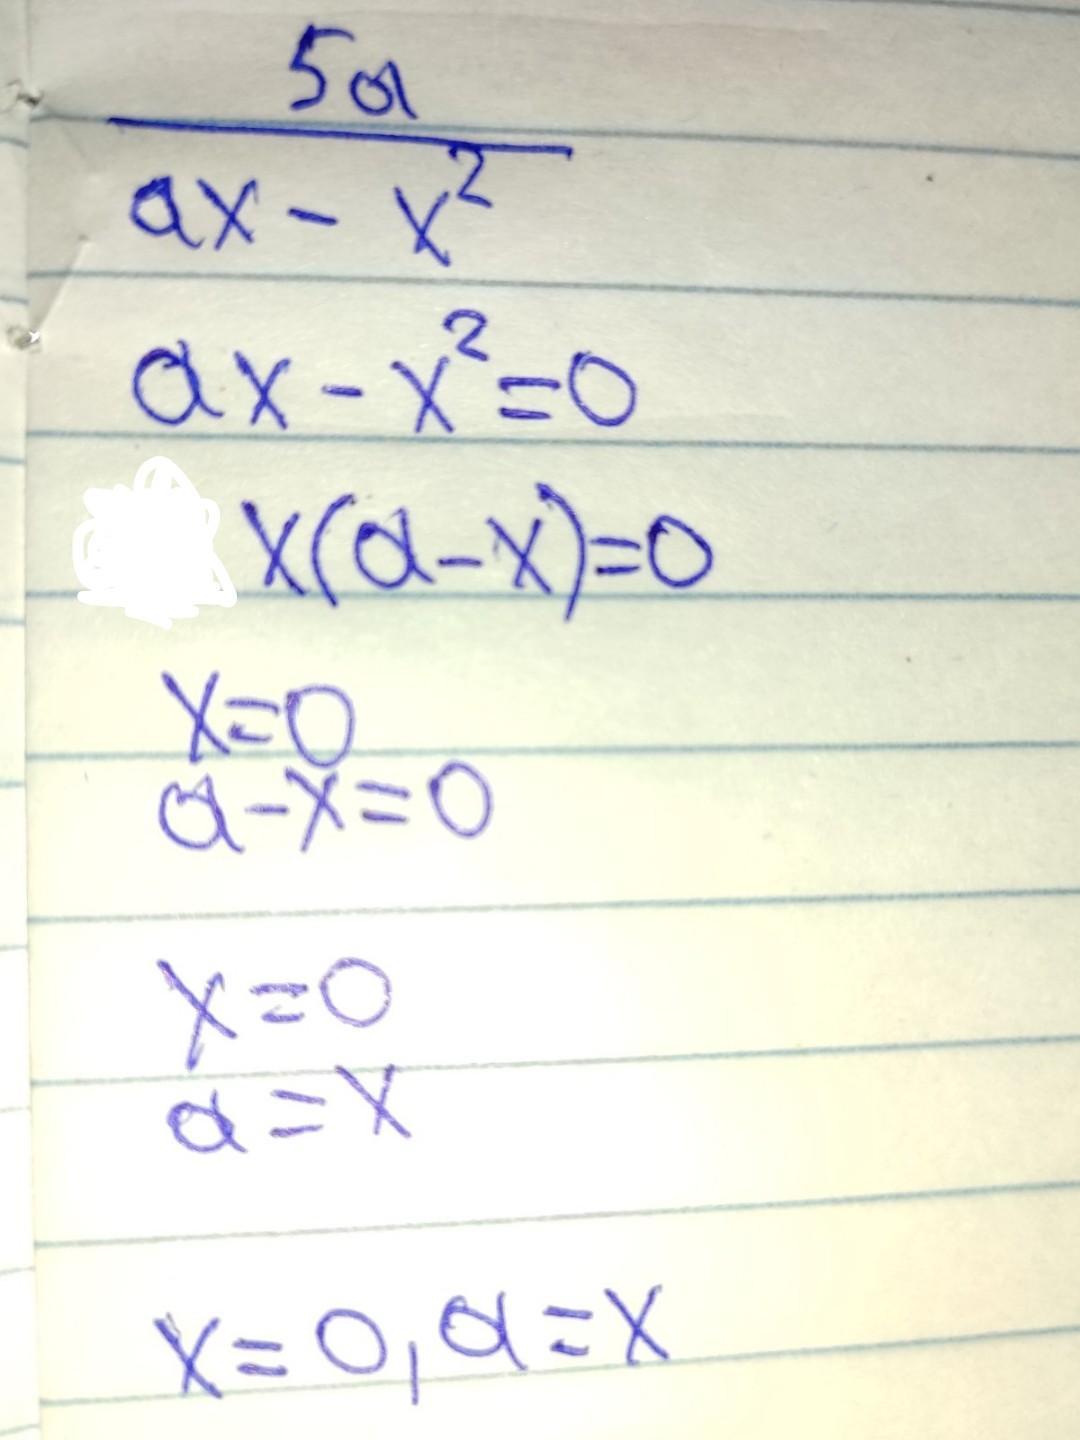 5a
ax - x²
ax - x² = 0
x(a - x) = 0
x = 0
a - x = 0
x = 0
a = x
x = 0, a = x